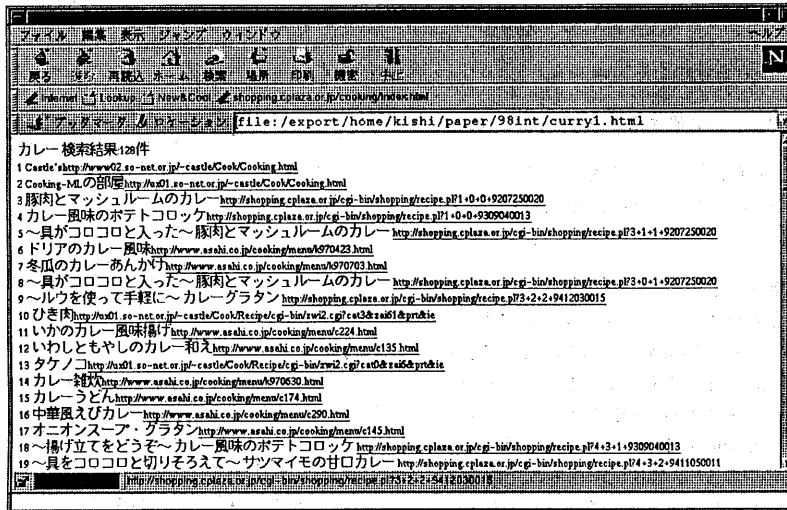 ファイル 編集 表示 ジャンプ ウインドウ ヘルプ
戻る 再読込 ホーム 検索 印刷
Internet Lookup New&Cool shopping.cplaza.or.jp/cooking/index.html
ブックマーク ロケーション file:/export/home/kishi/paper/98int/curry1.html
カレー 検索結果:128件
1 Castle'shttp://www02.so-net.or.jp/~castle/Cook/Cooking.html
2 Cooking-MLの部屋http://ux01.so-net.or.jp/~castle/Cook/Cooking.html
3 豚肉とマッシュルームのカレーhttp://shopping.cplaza.or.jp/cgi-bin/shopping/recipe.pl?1+0+0+9207250020
4 カレー風味のポテトコロッケhttp://shopping.cplaza.or.jp/cgi-bin/shopping/recipe.pl?1+0+0+9309040013
5 ～具がコロコロと入った～ 豚肉とマッシュルームのカレー http://shopping.cplaza.or.jp/cgi-bin/shopping/recipe.pl?3+1+1+9207250020
6 ドリアのカレー風味http://www.asahi.co.jp/cooking/menu/k970423.html
7 冬瓜のカレーあんかけhttp://www.asahi.co.jp/cooking/menu/k970703.html
8 ～具がコロコロと入った～ 豚肉とマッシュルームのカレー http://shopping.cplaza.or.jp/cgi-bin/shopping/recipe.pl?3+0+1+9207250020
9 ～ルウを使って手軽に～ カレーグラタン http://shopping.cplaza.or.jp/cgi-bin/shopping/recipe.pl?3+2+2+9412030015
10 ひき肉http://ux01.so-net.or.jp/~castle/Cook/Recipe/cgi-bin/zwi2.cgi?cat3&zai61&prt&ie
11 いかのカレー風味揚げhttp://www.asahi.co.jp/cooking/menu/c224.html
12 いわしともやしのカレー和えhttp://www.asahi.co.jp/cooking/menu/c135.html
13 タケノコhttp://ux01.so-net.or.jp/~castle/Cook/Recipe/cgi-bin/zwi2.cgi?cat0&zai5&prt&ie
14 カレー雑炊http://www.asahi.co.jp/cooking/menu/k970630.html
15 カレーうどんhttp://www.asahi.co.jp/cooking/menu/c174.html
16 中華風えびカレーhttp://www.asahi.co.jp/cooking/menu/c290.html
17 オニオンスープ・グラタンhttp://www.asahi.co.jp/cooking/menu/c145.html
18 ～揚げ立てをどうぞ～ カレー風味のポテトコロッケ http://shopping.cplaza.or.jp/cgi-bin/shopping/recipe.pl?4+3+1+9309040013
19 ～具をコロコロと切りそろえて～ サツマイモの甘口カレー http://shopping.cplaza.or.jp/cgi-bin/shopping/recipe.pl?4+3+2+9411050011
http://shopping.cplaza.or.jp/cgi-bin/shopping/recipe.pl?3+2+2+9412030015